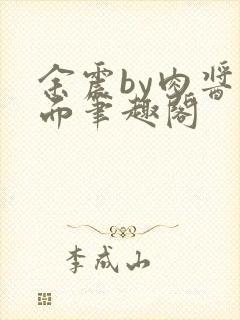 余震by肉酱
而笔趣阁
李成山